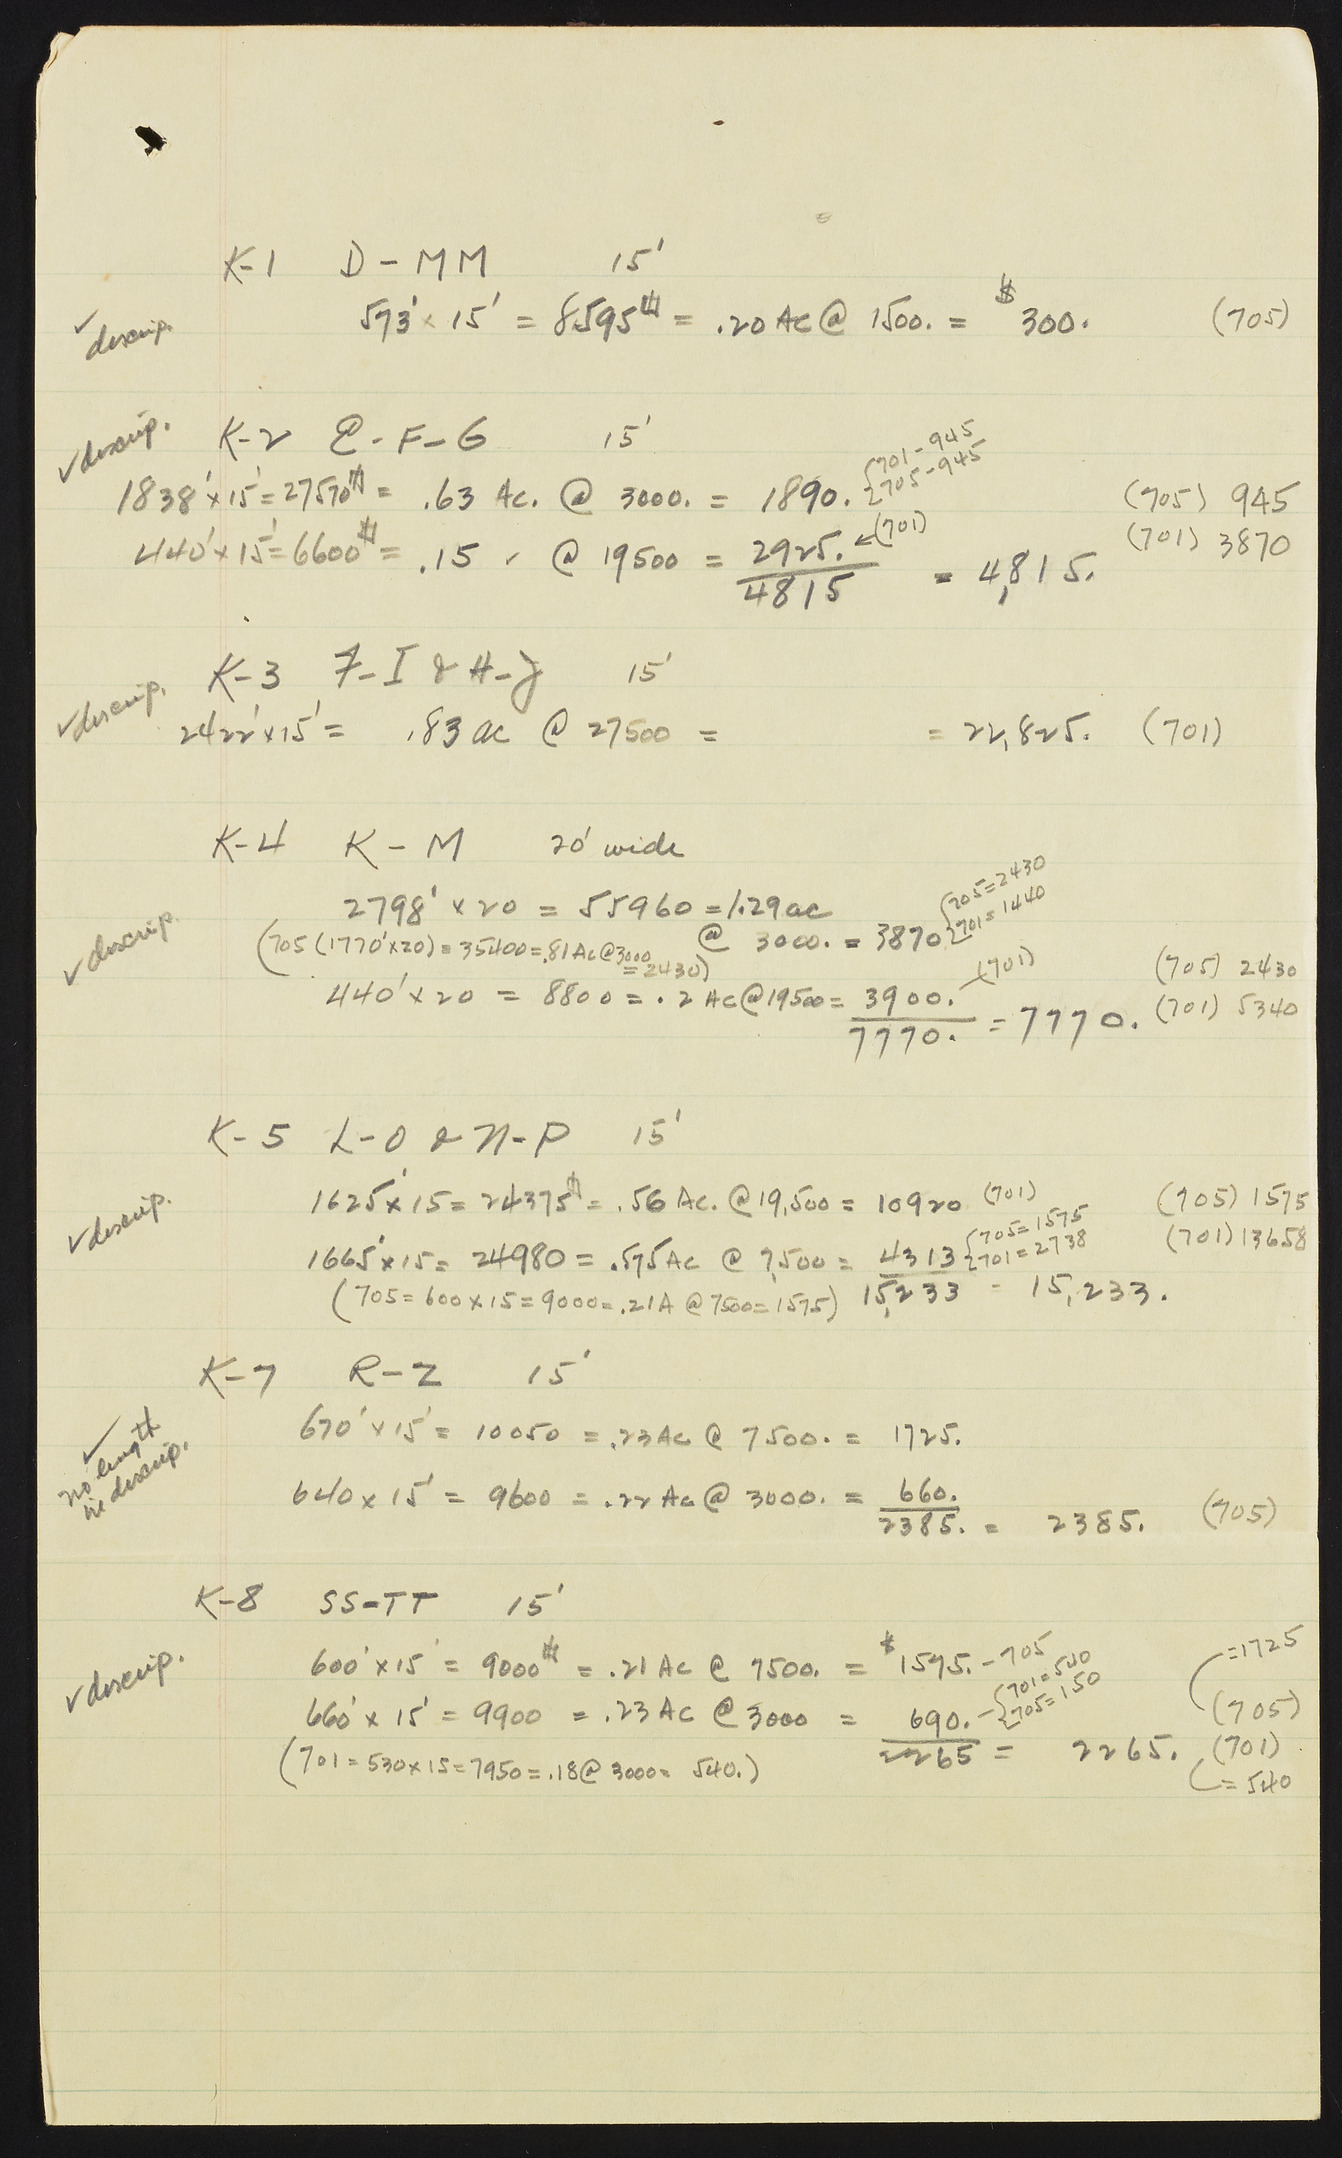 K-1 D-MM 15'
✓ descrip. 573' x 15' = 8595 = .20 Ac @ 1500. = $300. (705)
✓ descrip. K-2 E-F-G 15'
1838' x 15' = 27570 = .63 Ac. @ 3000. = 1890. {701-945 705-945 (705) 945
440' x 15' = 6600 = .15 @ 19500 = 2925. ←(701) (701) 3870
4815 = 4,815.
✓ descrip. K-3 F-I & H-J 15'
2422' x 15' = .83 ac @ 27500 = = 22,825. (701)
K-4 K-M 20' wide
2798' x 20 = 55960 = 1.29 ac
✓ descrip. @ 3000. = 3870 {705=2430 701=1440
(705 (1770' x 20) = 35400 = .81 Ac @ 3000 = 2430) (705) 2430
440' x 20 = 8800 = .2 Ac @ 19500 = 3900. (701) (701) 5340
7770. = 7770.
K-5 L-O & N-P 15'
✓ descrip. 1625' x 15 = 24375 = .56 Ac. @ 19,500 = 10920 (701) (705) 1575
1665' x 15 = 24980 = .575 Ac @ 7,500 = 4313 {705=1575 701=2738 (701) 13658
(705 = 600 x 15 = 9000 = .21 A @ 7500 = 1575) 15,233 = 15,233.
K-7 R-Z 15'
✓ no length in descrip. 670' x 15' = 10050 = .23 Ac @ 7500. = 1725.
640 x 15' = 9600 = .22 Ac @ 3000. = 660.
2385. = 2385. (705)
K-8 SS-TT 15'
✓ descrip. 600' x 15' = 9000 = .21 Ac @ 7500. = $1575. - 705 = 1725
660' x 15' = 9900 = .23 Ac @ 3000 = 690. - {701=540 705=150 (705)
2265 = 2265. (701)
(701 = 530 x 15 = 7950 = .18 @ 3000 = 540.) = 540